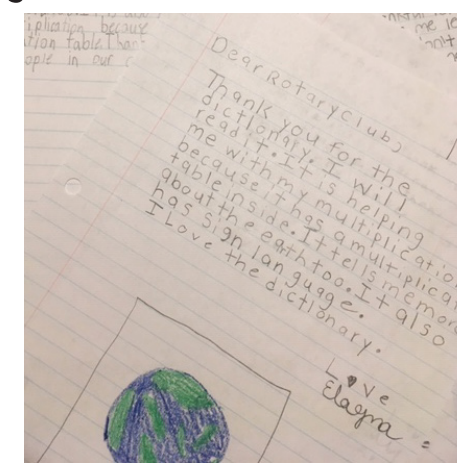 iplication because
ation table
ople in our
Dear Rotary Club,
Thank you for the
dictionary. I Will
read it. It is helping
me with my multiplicatio
because it has a multiplicat
table inside. It tells me mor
about the earth too. It also
has sign language.
I Love the dictionary.
Love